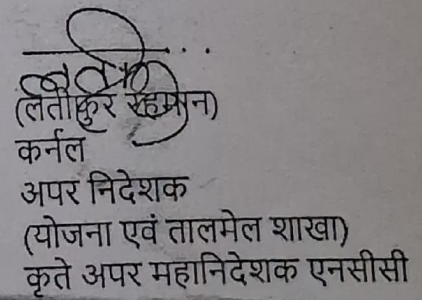 (लतीफुर रहमान)
कर्नल
अपर निदेशक
(योजना एवं तालमेल शाखा)
कृते अपर महानिदेशक एनसीसी